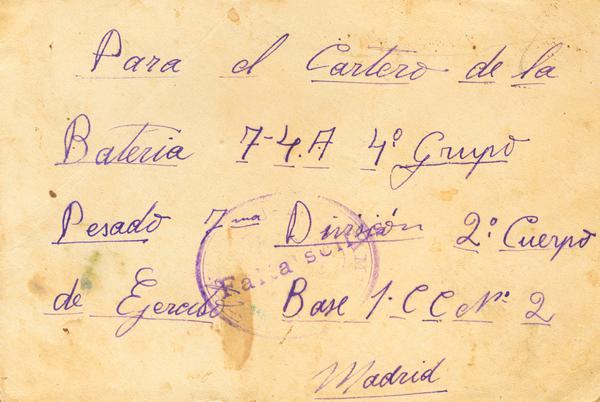 Para el Cartero de la
Bateria 7-4.A 4º Grupo
Pesado 7ma División 2º Cuerpo
de Ejercito Base 1· C C Nº 2
Madrid
Falta sello